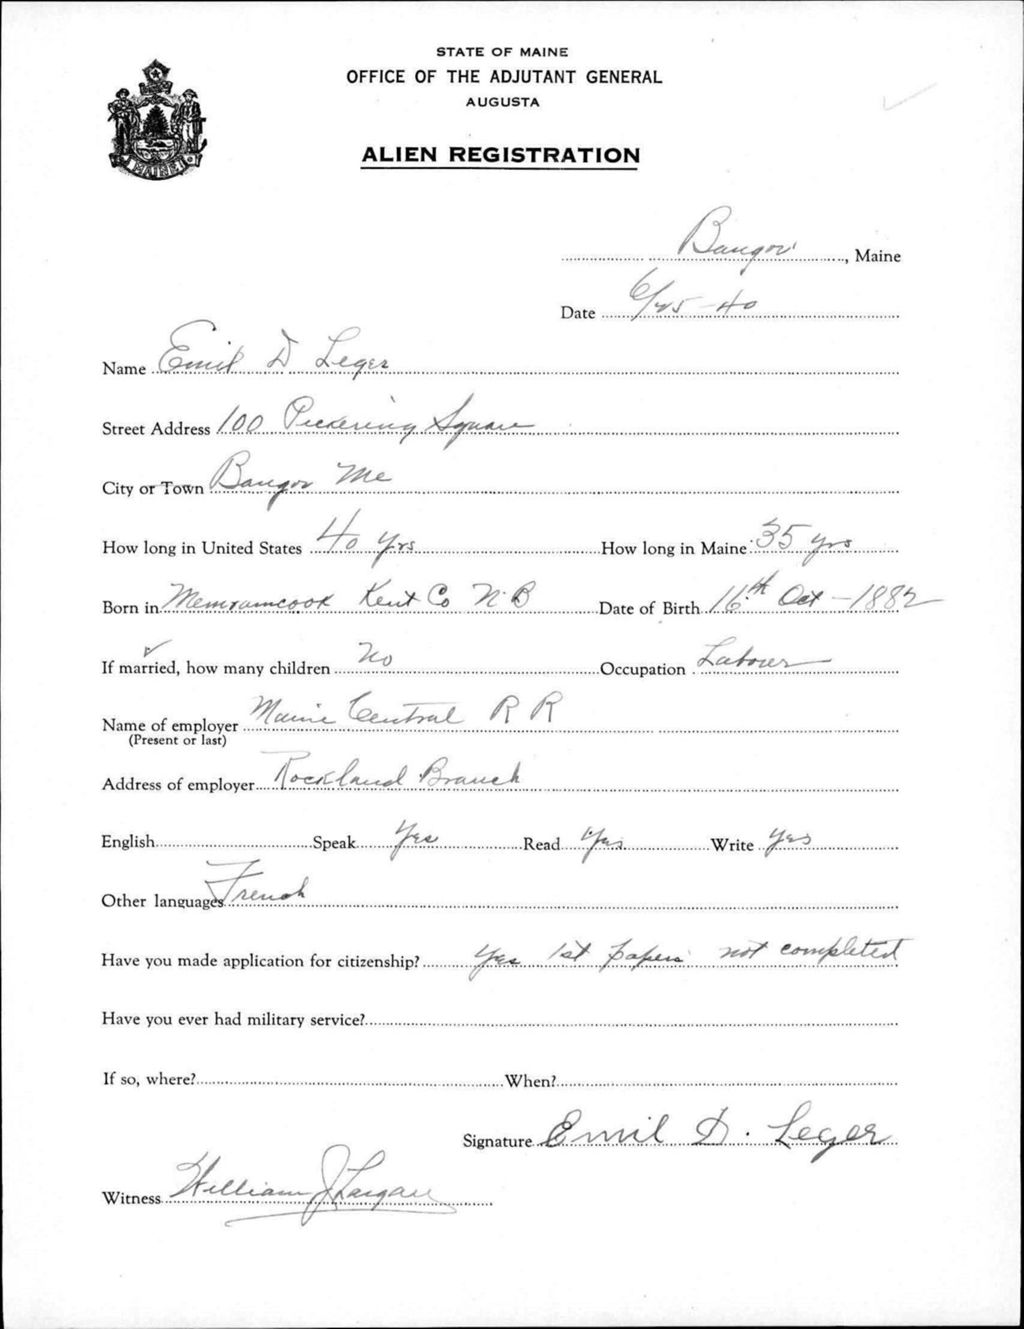 STATE OF MAINE
OFFICE OF THE ADJUTANT GENERAL
AUGUSTA
ALIEN REGISTRATION
MAINE
Bangor, Maine
Date 6/25-40
Name Emil D Leger
Street Address 100 Pickering Square
City or Town Bangor Me
How long in United States 40 yrs How long in Maine 35 yrs
Born in Memramcook Kent Co N.B Date of Birth 16th Oct - 1882
If married, how many children No Occupation Laborer
Name of employer Maine Central R R
(Present or last)
Address of employer Rockland Branch
English Speak Yes Read Yes Write Yes
Other languages French
Have you made application for citizenship? Yes 1st papers not completed
Have you ever had military service?
If so, where? When?
Signature Emil D. Leger
Witness William J